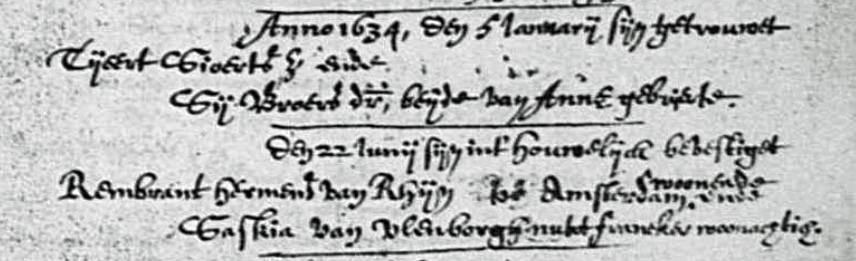 Anno 1634, den 5 Januarij sijn getrouwet
Tijeert Sioerts z ende
Sij Broers dr, beijde van Anne gebuerte.
Den 22 Junij sijn int houwelijck bevestiget
Rembrant Hermens van Rhijn tot Amsterdam woonende ende
Saskia van Ulenborgh nu tot Franeker woonachtich.